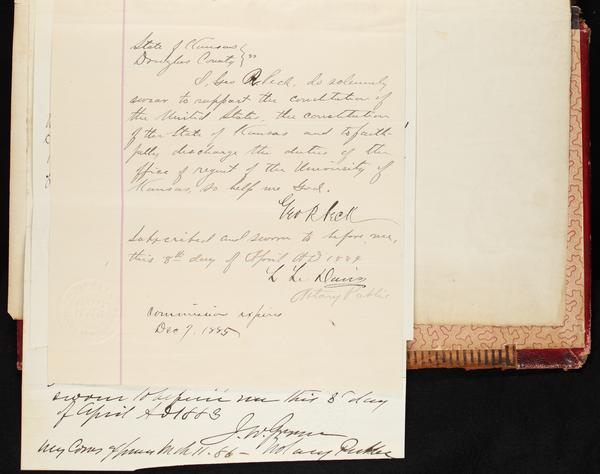 State of Kansas
Douglas County } ss
I, Geo R. Peck, do solemnly
swear to support the constitution of
the United States, the constitution
of the State of Kansas and to faith
fully discharge the duties of the
office of regent of the University of
Kansas, so help me God.
Geo R Peck
Subscribed and sworn to before me,
this 8th day of April A.D. 1884
L. L. Davis
Notary Public
Commission expires
Dec 9. 1885
sworn to before me this 8" day
of April A D 1883
J. W.
My Com expires Mch 11. 86 – Notary Public